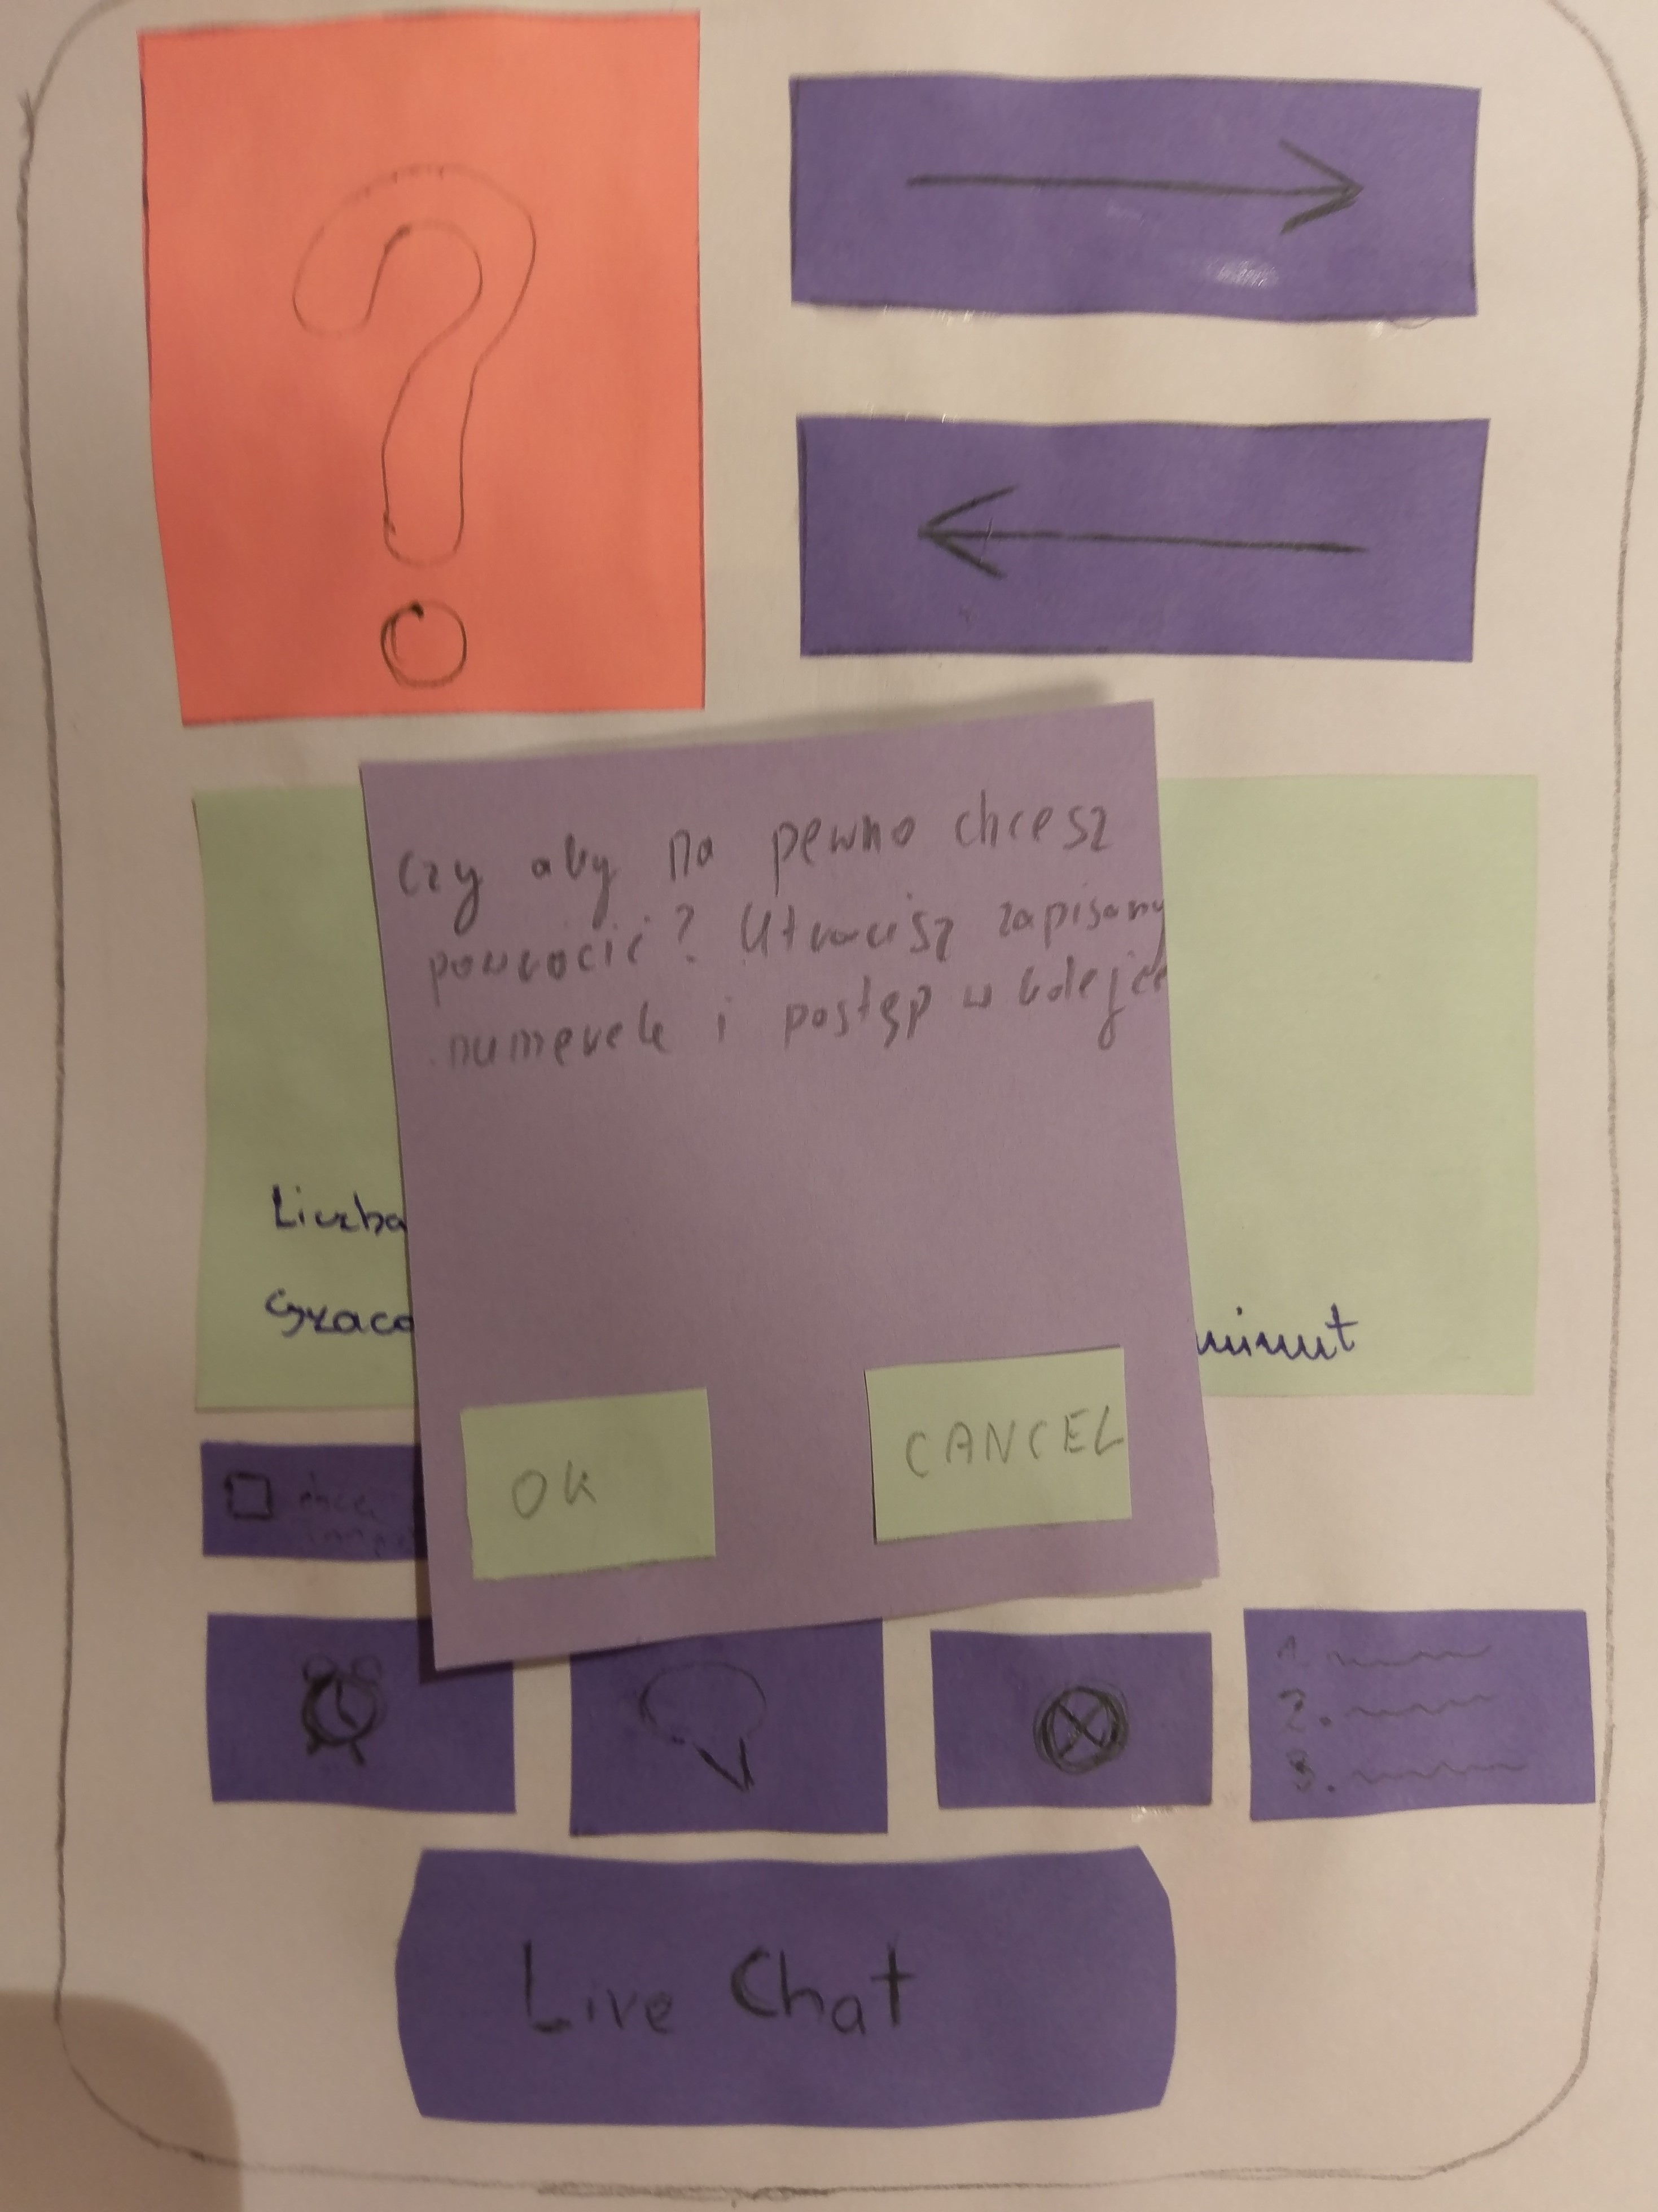 ?
Czy aby na pewno chcesz
powrócić? Utracisz zapisany
numerek i postęp w kolejce
Liczba
minut
OK
CANCEL
chcę
1.
2.
3.
Live Chat